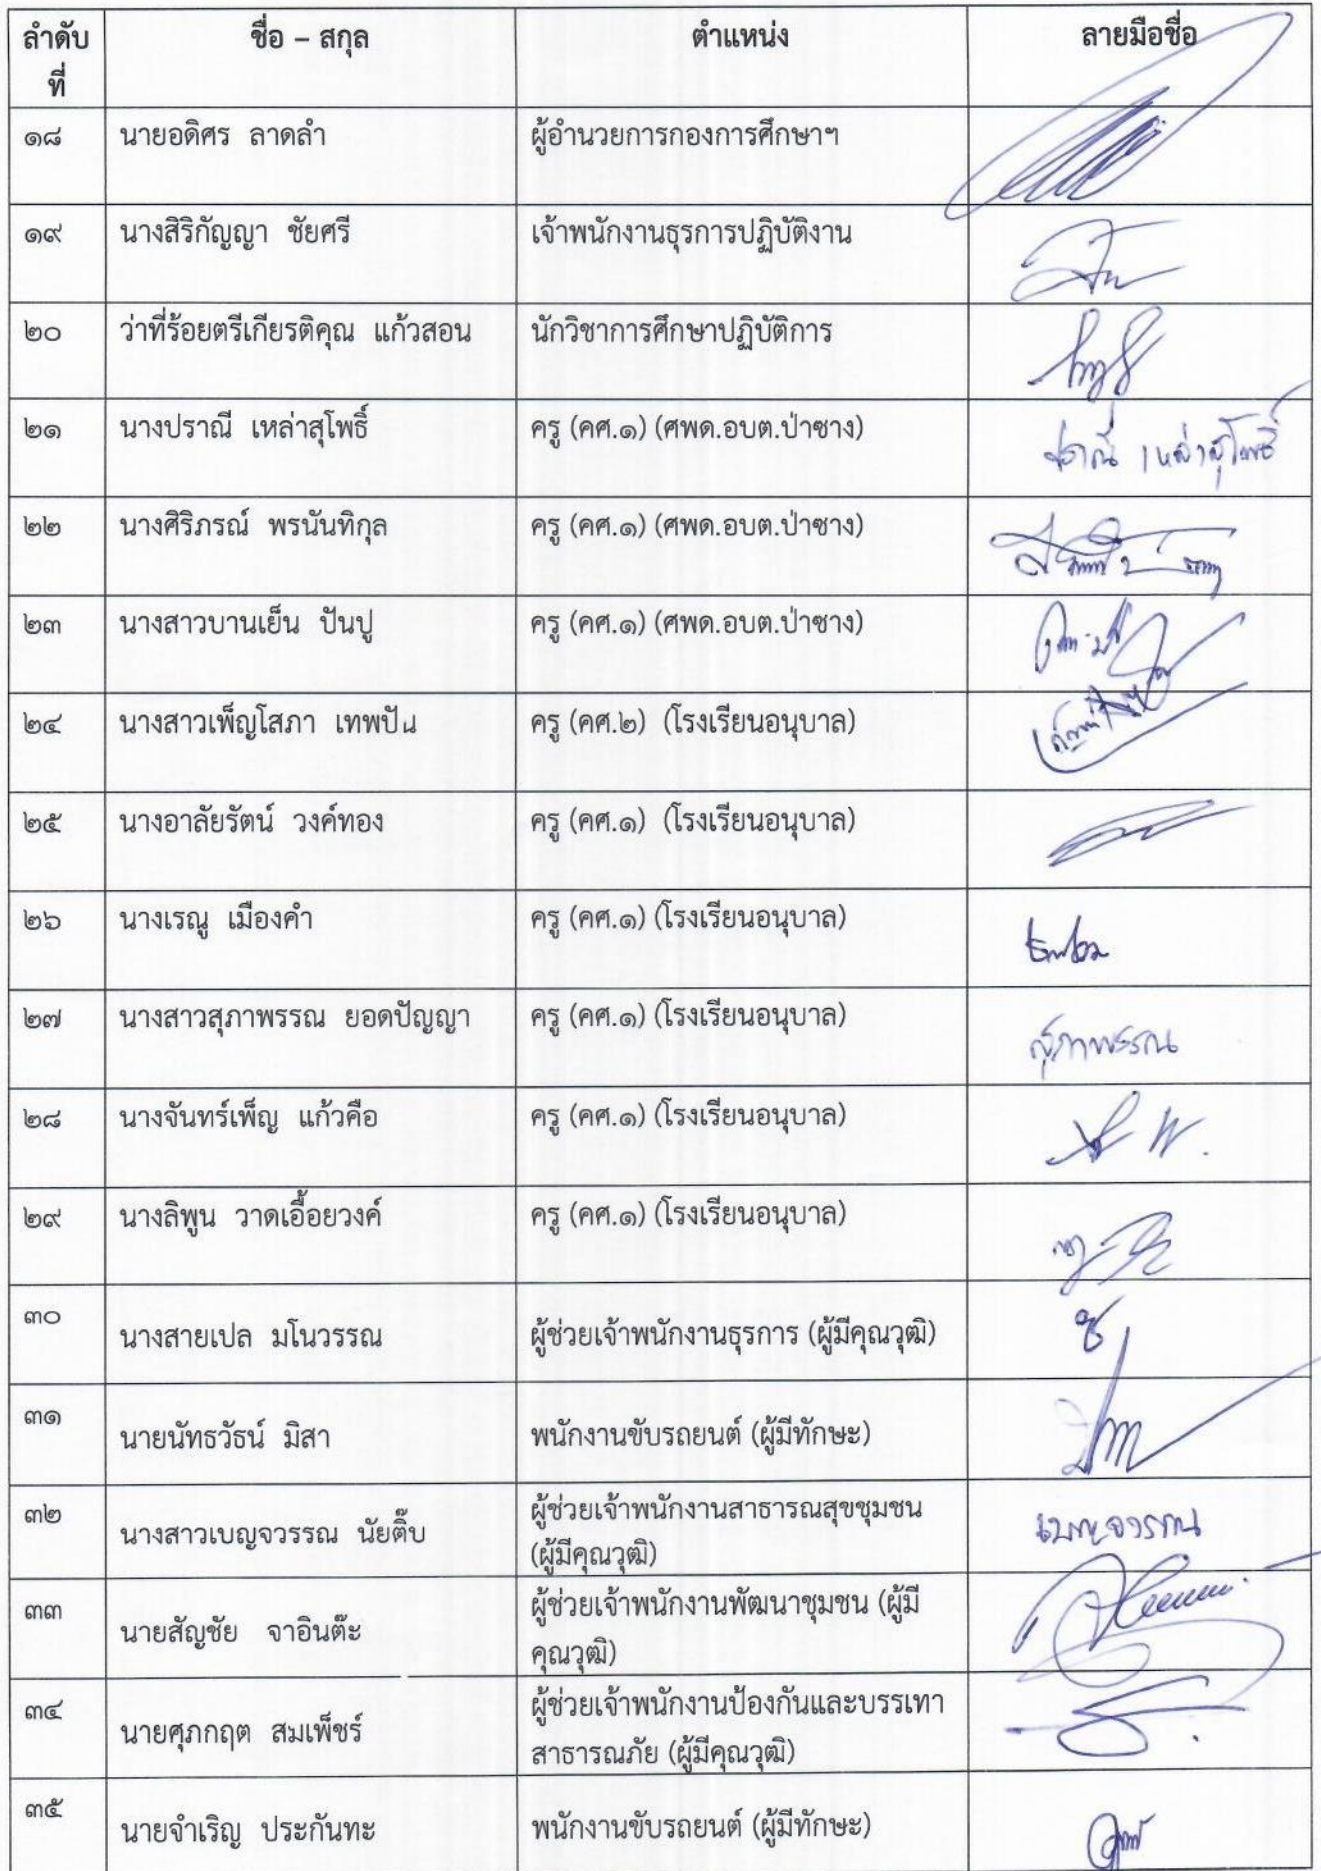 ลำดับที่ ชื่อ – สกุล ตำแหน่ง ลายมือชื่อ
๑๘ นายอดิศร ลาดลำ ผู้อำนวยการกองการศึกษาฯ
๑๙ นางสิริกัญญา ชัยศรี เจ้าพนักงานธุรการปฏิบัติงาน
๒๐ ว่าที่ร้อยตรีเกียรติคุณ แก้วสอน นักวิชาการศึกษาปฏิบัติการ
๒๑ นางปราณี เหล่าสุโพธิ์ ครู (คศ.๑) (ศพด.อบต.ป่าซาง) ปราณี เหล่าสุโพธิ์
๒๒ นางศิริภรณ์ พรนันทิกุล ครู (คศ.๑) (ศพด.อบต.ป่าซาง)
๒๓ นางสาวบานเย็น ปันปู ครู (คศ.๑) (ศพด.อบต.ป่าซาง)
๒๔ นางสาวเพ็ญโสภา เทพปัน ครู (คศ.๒) (โรงเรียนอนุบาล)
๒๕ นางอาลัยรัตน์ วงค์ทอง ครู (คศ.๑) (โรงเรียนอนุบาล)
๒๖ นางเรณู เมืองคำ ครู (คศ.๑) (โรงเรียนอนุบาล)
๒๗ นางสาวสุภาพรรณ ยอดปัญญา ครู (คศ.๑) (โรงเรียนอนุบาล) สุภาพรรณ
๒๘ นางจันทร์เพ็ญ แก้วคือ ครู (คศ.๑) (โรงเรียนอนุบาล)
๒๙ นางลิพูน วาดเอื้อยวงค์ ครู (คศ.๑) (โรงเรียนอนุบาล)
๓๐ นางสายเปล มโนวรรณ ผู้ช่วยเจ้าพนักงานธุรการ (ผู้มีคุณวุฒิ)
๓๑ นายนัทธวัธน์ มิสา พนักงานขับรถยนต์ (ผู้มีทักษะ)
๓๒ นางสาวเบญจวรรณ นัยติ๊บ ผู้ช่วยเจ้าพนักงานสาธารณสุขชุมชน
(ผู้มีคุณวุฒิ) เบญจวรรณ
๓๓ นายสัญชัย จาอินต๊ะ ผู้ช่วยเจ้าพนักงานพัฒนาชุมชน (ผู้มี
คุณวุฒิ)
๓๔ นายศุภกฤต สมเพ็ชร์ ผู้ช่วยเจ้าพนักงานป้องกันและบรรเทา
สาธารณภัย (ผู้มีคุณวุฒิ)
๓๕ นายจำเริญ ประกันทะ พนักงานขับรถยนต์ (ผู้มีทักษะ)